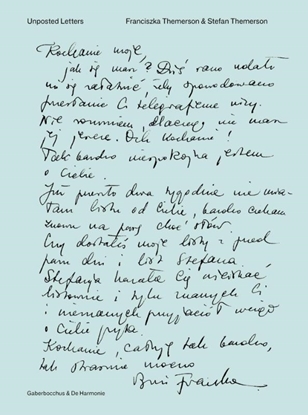 Unposted Letters
Franciszka Themerson & Stefan Themerson
Kochanie moje,
jak się masz? Dziś rano udało
mi się załatwić, żeby spowodowano
przesłanie Ci telegraficzne wizy.
Nie rozumiem, dlaczego nie masz
jej jeszcze. Och kochanie!
Tak bardzo niespokojna jestem
o Ciebie.
Już prawie dwa tygodnie nie mia-
łam listu od Ciebie, bardzo czekam
znowu na parę słów.
Czy dostałeś moje listy z przed
paru dni i list Stefana
Stefania kazała Cię uściskać,
i tylu znanych Ci
i nieznanych przyjaciół wciąż
o Ciebie pyta.
Kochanie, całuję tak bardzo,
tak strasznie mocno
Franka
Gaberbocchus & De Harmonie